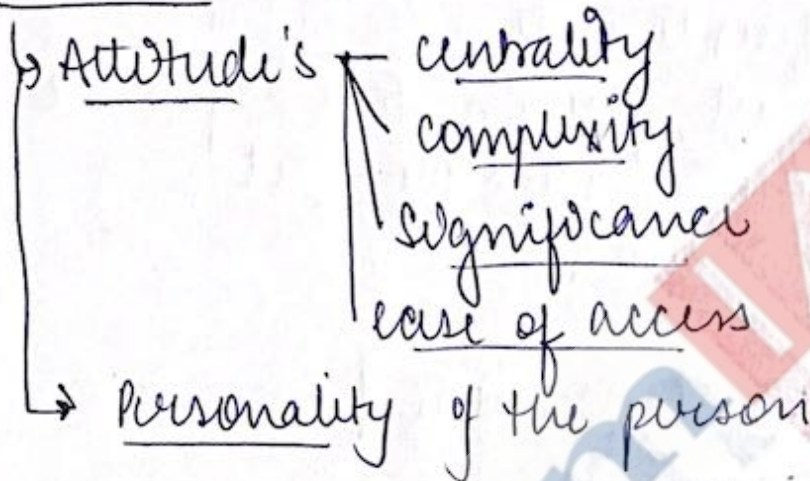 Attitude's
centrality
complexity
significance
ease of access
Personality of the person